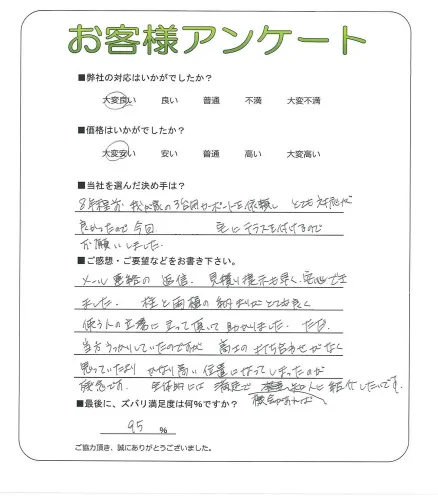 お客様アンケート
■弊社の対応はいかがでしたか?
大変良い 良い 普通 不満 大変不満
■価格はいかがでしたか?
大変安い 安い 普通 高い 大変高い
■当社を選んだ決め手は?
8年程前 我が家の3台用カーポートを依頼し とても対応が
良かったので今回 宅にテラスを付けるので
お願いしました.
■ご感想・ご要望などをお書き下さい。
メール連絡の返信、見積り提示も早く、安心でき
ました。柱と雨樋の納まりがとても良く
使う人の立場に立って頂いて助かりました。ただ、
当方うっかりしていたのですが 高さの打ち合わせがなく
思っていたより かなり高い位置になってしまったのが
残念です。全体的には 満足で 知人に紹介したいです。
機会があれば、
■最後に、ズバリ満足度は何%ですか?
95 %
ご協力頂き、誠にありがとうございました。